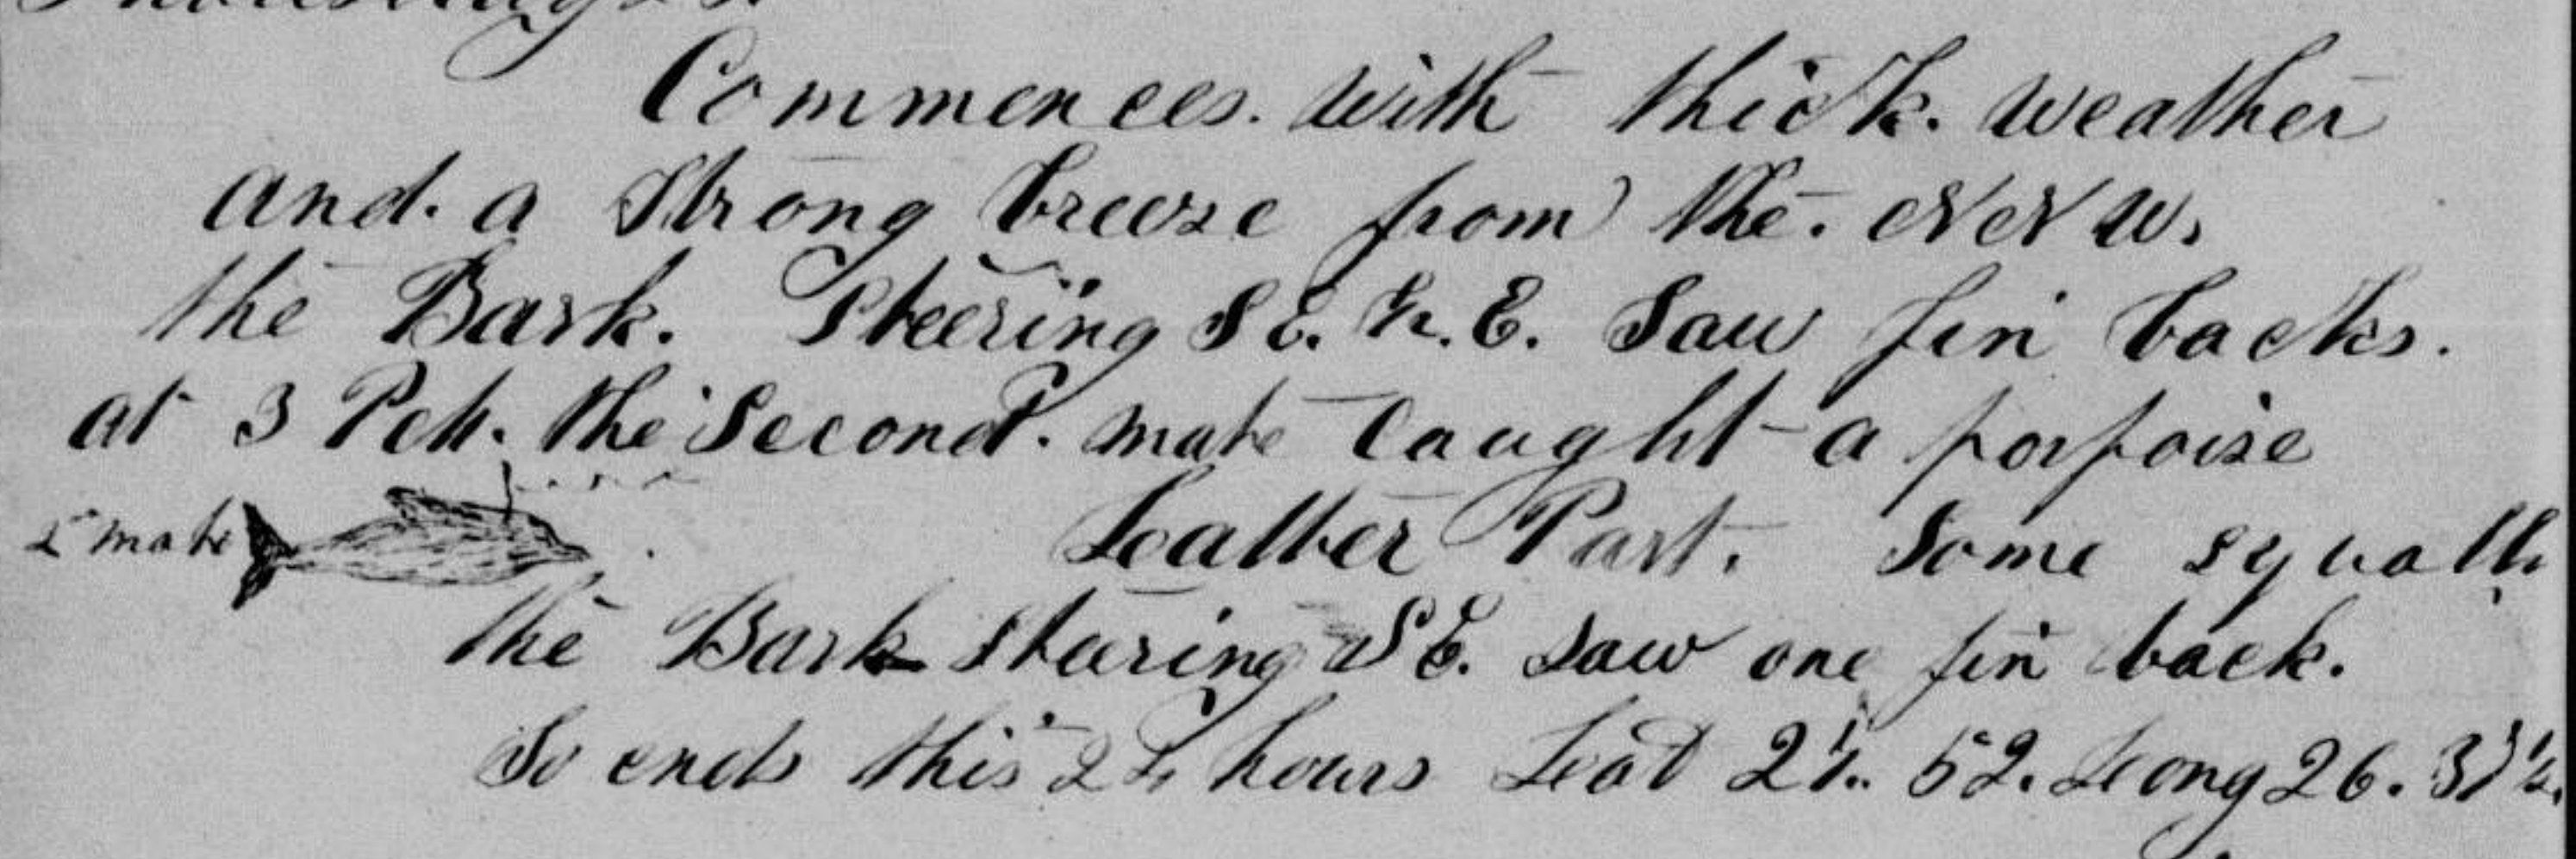 Commences. with thick. weather
and. a Strong breeze from the. N N W.
the Bark. Steering S E. h. E. Saw fin backs.
at 3 P M. the Second. mate Caught a porpoise
2 mate
Latter Part. Some squalls
the Bark steering S E. Saw one fin back.
So ends this 24 hours Lat 21.. 52. Long 26.